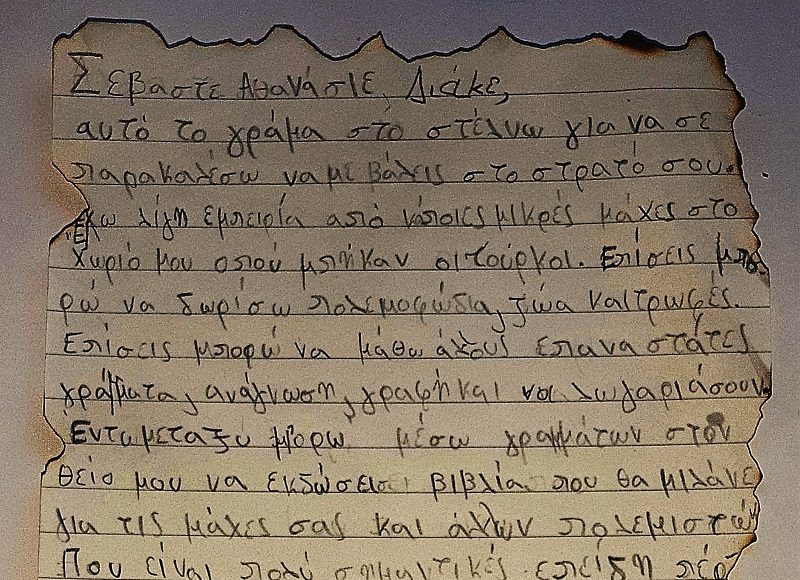 Σεβαστε Αθανάσιε Διάκε,
αυτό το γράμα στο στέλνω για να σε
παρακαλέσω να με βάλεις στο στρατό σου.
Έχω λίγη εμπειρία από κάποιες μικρές μάχες στο
χωριό μου οπού μπήκαν οι τούρκοι. Επίσεις μπο
ρώ να δωρίσω πολεμοφώδια, ζώα και τρωφές.
Επίσεις μπορώ να μάθω άλλους επαναστάτες
γράμματα, ανάγνωση, γραφή και να λωγαριάσουν.
Ενταμεταξύ μπορώ μέσω γραμμάτων στον
θείο μου να εκδώσει βιβλία που θα μιλάνε
για τις μάχες σας και άλλων πολεμιστών
που είναι πολύ σημαντικές επειδή